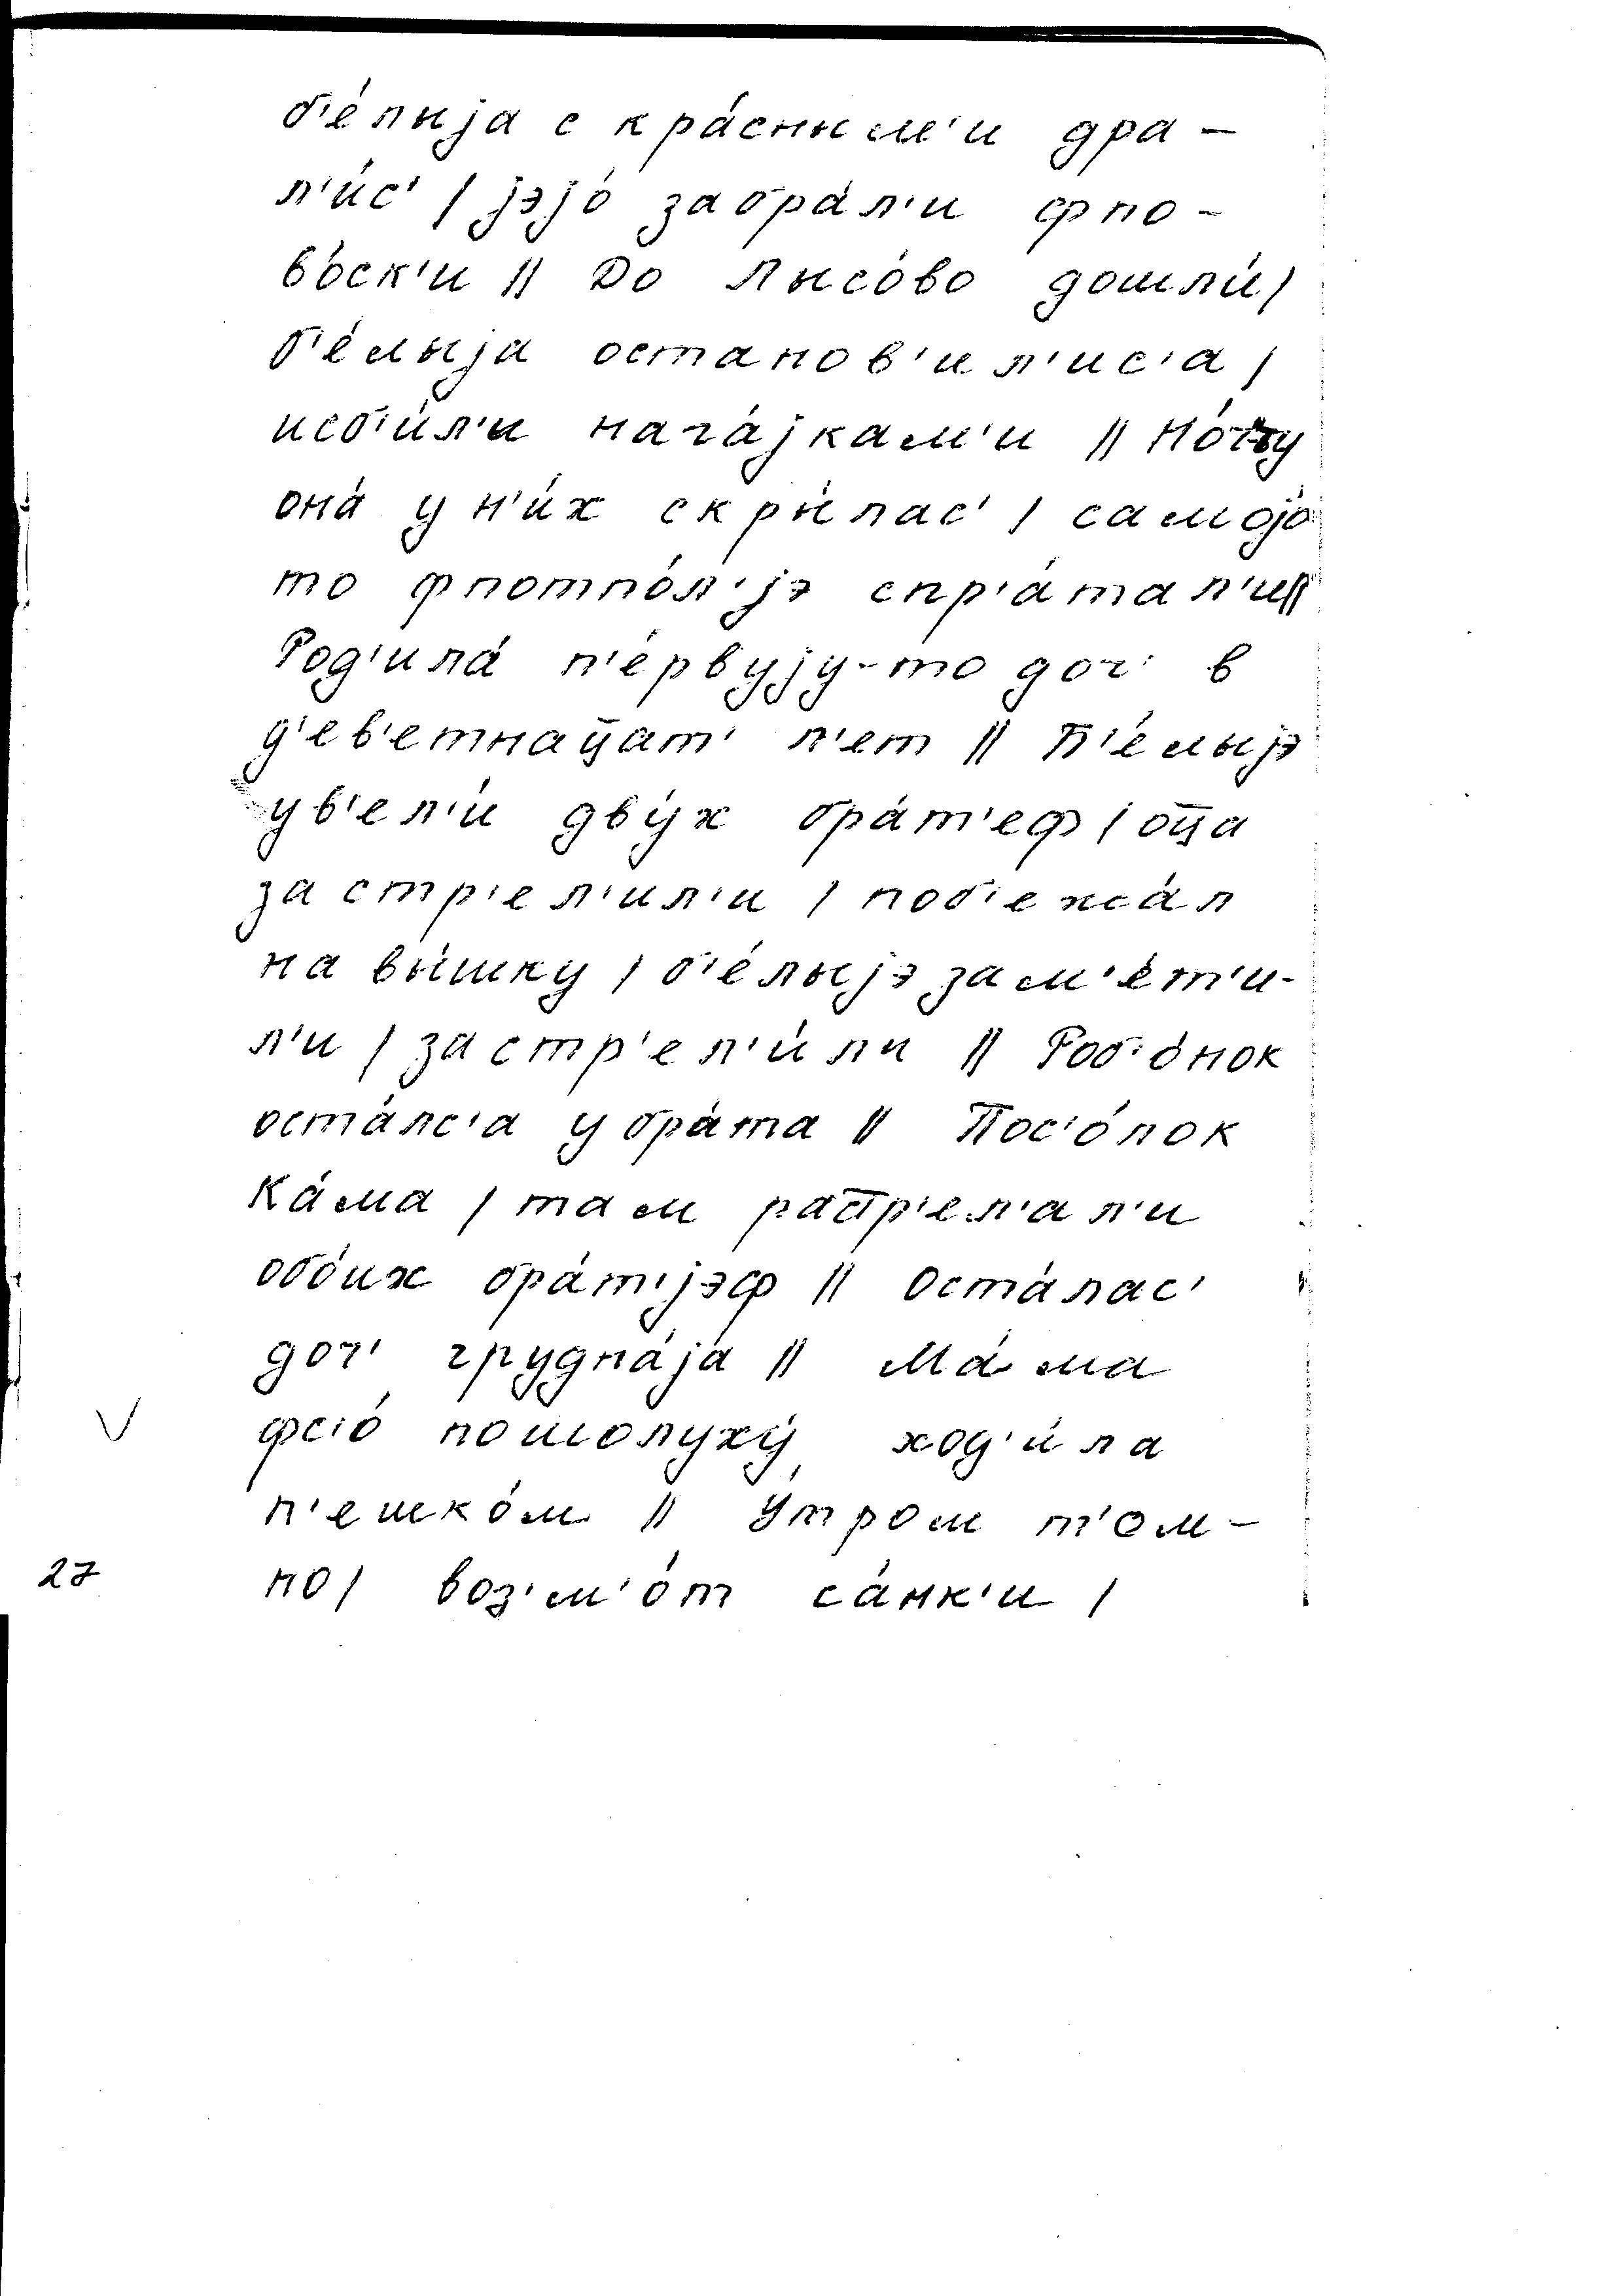 б'е́лыjа с кра́сным'и дра-
л'и́с' / jэjо́ забра́л'и фпо-
во́ск'и // До Лысо́во дошли́ /
б'е́лыjа останов'ил'ис'а /
исб'и́л'и нага́jкам'и //
она́ у н'и́х скры́лас' / самоjо́
то фпотпо́л'jэ спр'а́тал'и //
Род'ила́ п'е́рвуjу-то доч' в
д'ев'етнац̄ат' л'ет // Б'е́лыjэ
ув'ел'и́ дву́х бра́т'еф / оц̄а
застр'ел'ил'и / поб'ежа́л
на вы́шку / б'е́лыjэ зам'е́т'и-
л'и / застр'ел'и́ли // Роб'о́нок
оста́лс'а у бра́та // Пос'о́лок
Ка́ма / там рас̄тр'ел'ал'и
обо́их бра́т'jэф // Оста́лас'
доч' грудна́jа́ // Ма́ма
фс'о́ пошолуху́ ход'и́ла
п'ешко́м // У́тром т'ом-
но / воз'м'о́т са́нк'и /
27